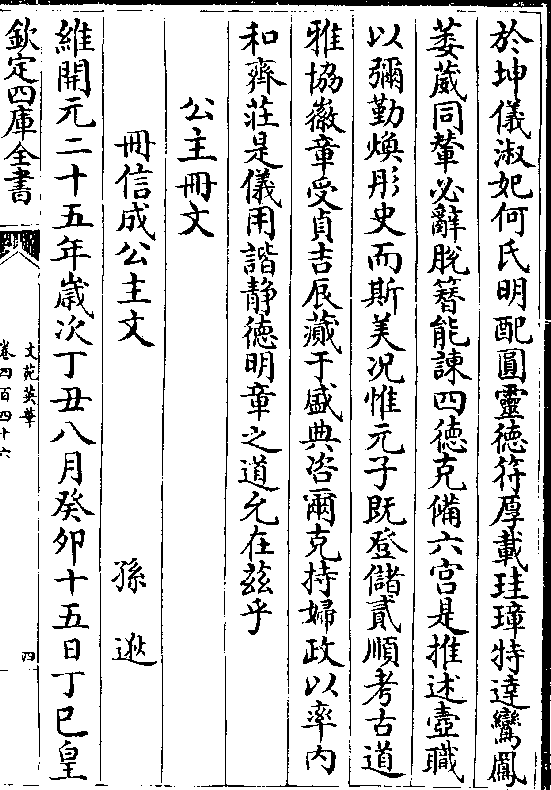 於坤儀淑妃何氏明配圓靈徳符厚載珪璋特達鸞鳳
萎葳同輦必辭脫簪能諫四徳克備六宫是推述壼職
以彌勤煥彤史而斯美况惟元子既登儲貳順考古道
雅協徽章受貞吉辰蕆于盛典咨爾克持婦政以率内
和齊莊是儀用諧静徳明章之道允在兹乎
公主冊文
冊信成公主文
孫逖
維開元二十五年嵗次丁丑八月癸卯十五日丁巳皇
欽定四庫全書
文苑英華
卷四百四十六
四